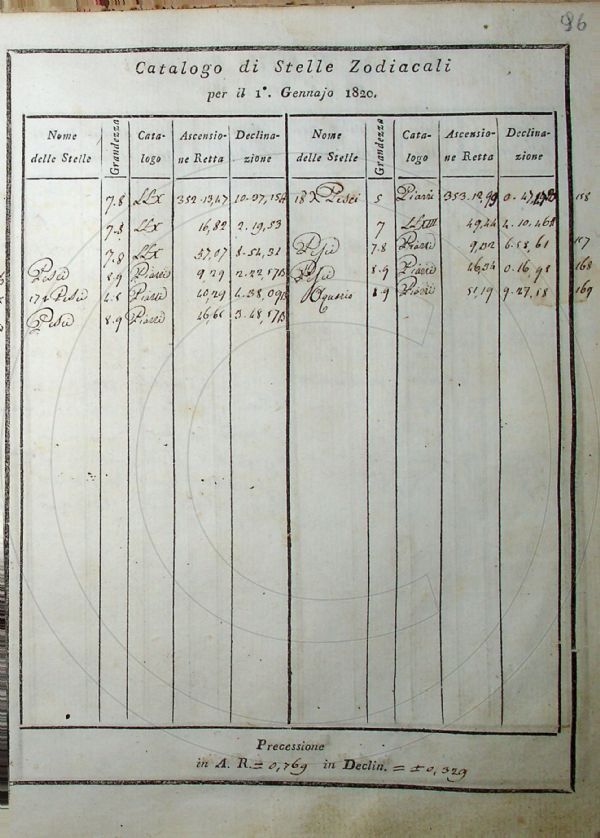 96
Catalogo di Stelle Zodiacali
per il 1º. Gennajo 1820.
Nome delle Stelle Grandezza Cata-logo Ascensio-ne Retta Declina-zione Nome delle Stelle Grandezza Cata-logo Ascensio-ne Retta Declina-zione
7.8 LLX 352.13,47 10.37, 5 Piazzi 353.12, 0.47, 158
7.8 LLX 16,82 2.19,53 7 LLXIII 49,44 4.10,46
7.8 LLX 37,07 8.54,31 Pesci 7.8 Piazzi 9,02 6.58,61 167
Pesci 8.9 Piazzi 9,29 2.22,17 Pesci 8.9 Piazzi 46,34 0.16,98 168
Pesci Piazzi 40,29 4.38,09 Aquario 8.9 Piazzi 51,19 9.27,18 169
Pesci 8.9 Piazzi 46,61 3.48,17
Precessione
in A. R. = 0,769 in Declin. = ±0,329